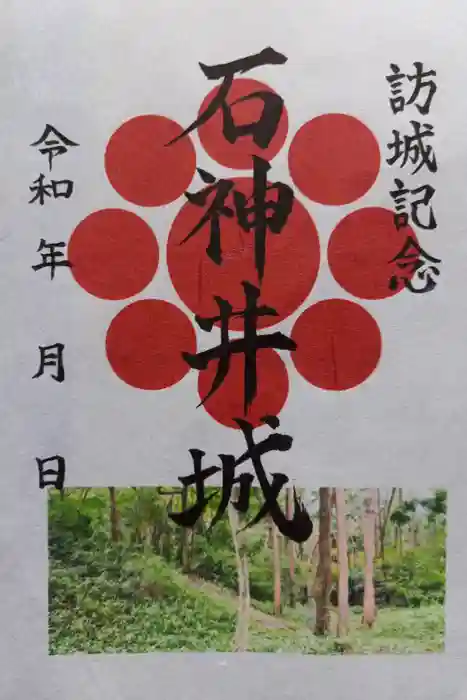 訪城記念
石神井城
令和 年 月 日